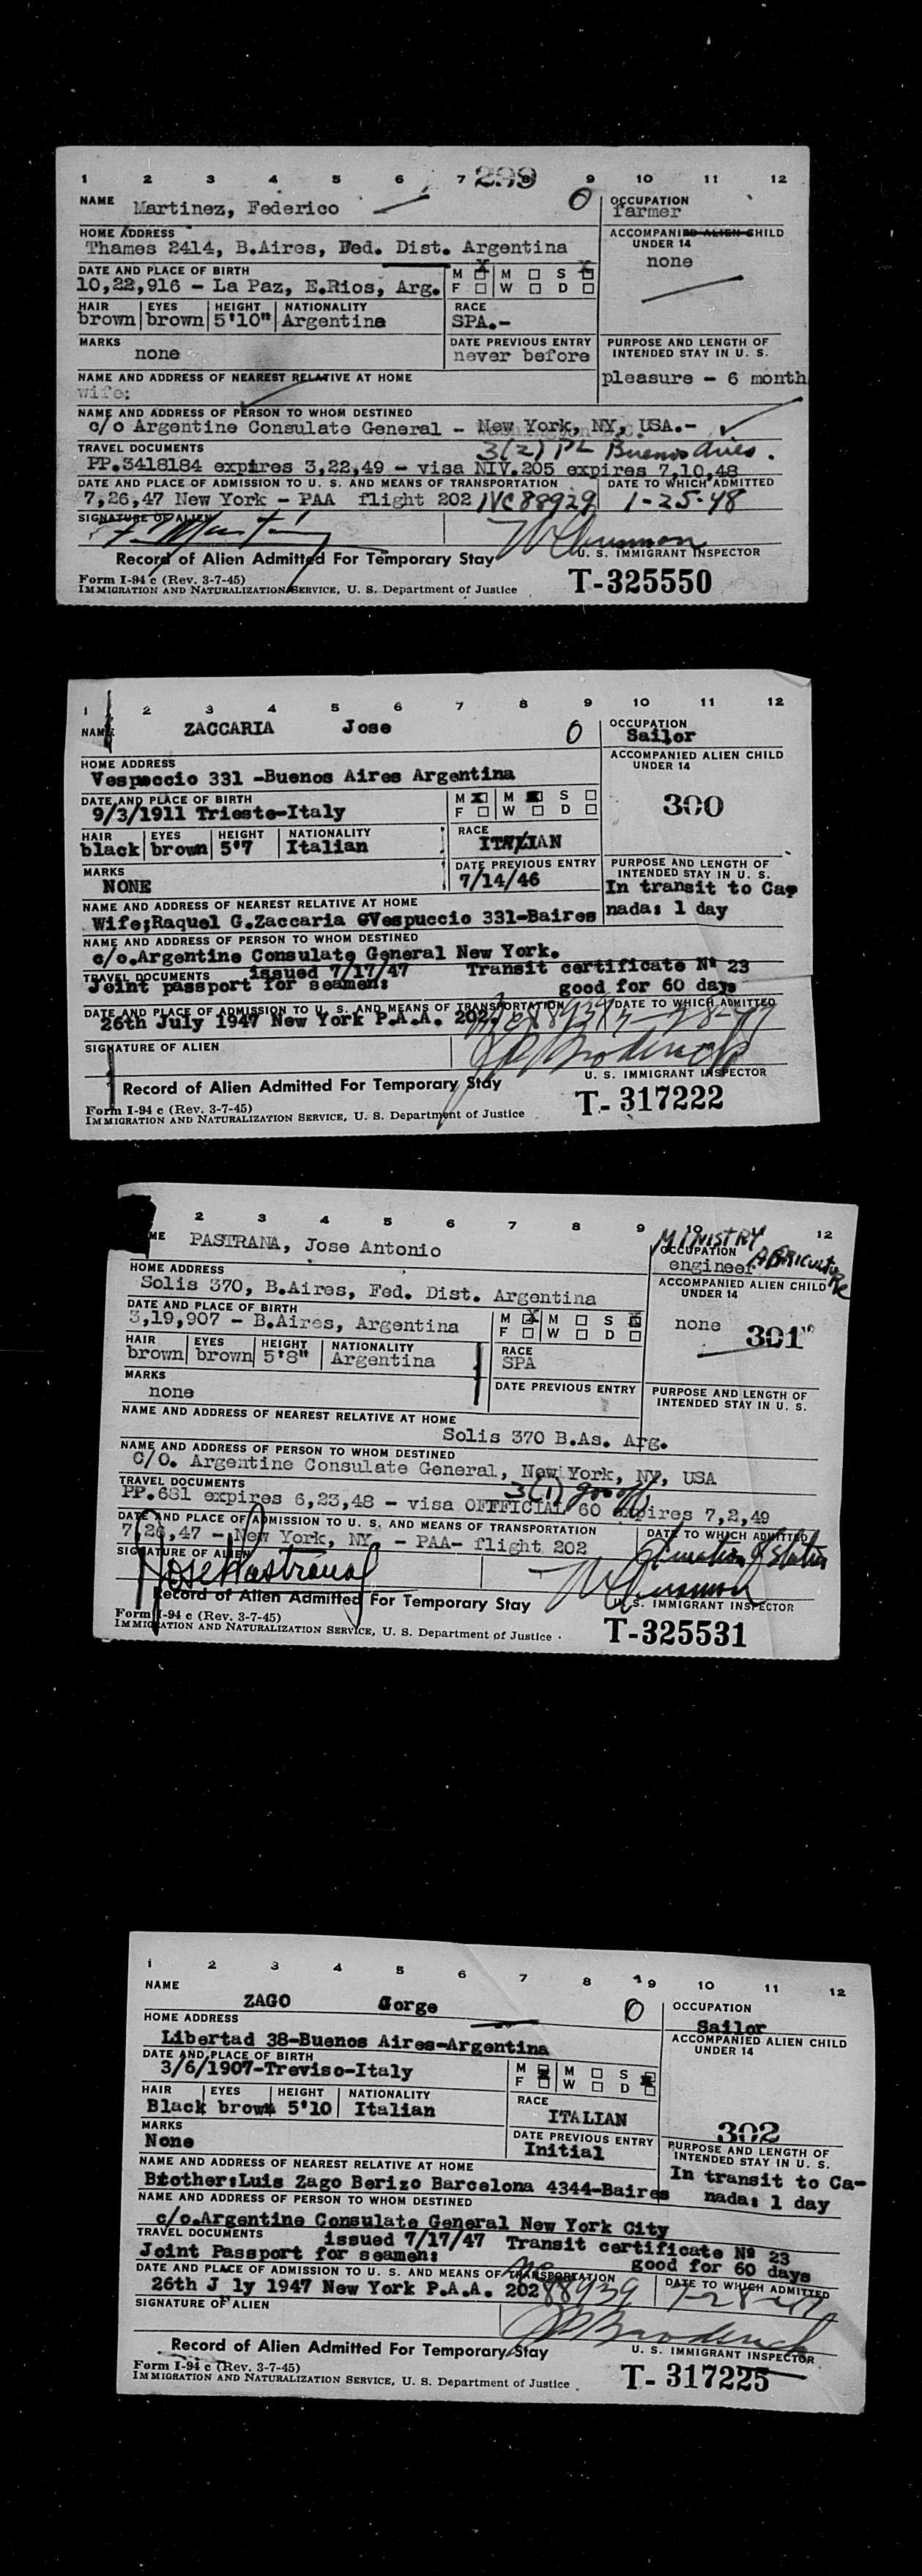 1 2 3 4 5 6 7 8 9 10 11 12
299
NAME Martinez, Federico O OCCUPATION
farmer
HOME ADDRESS ACCOMPANIED ALIEN CHILD
UNDER 14
Thames 2414, B.Aires, Fed. Dist. Argentina
none
DATE AND PLACE OF BIRTH M M S
10,22,916 - La Paz, E.Rios, Arg. F W D
HAIR EYES HEIGHT NATIONALITY RACE
brown brown 5'10" Argentina SPA.-
MARKS DATE PREVIOUS ENTRY PURPOSE AND LENGTH OF
INTENDED STAY IN U. S.
none never before
NAME AND ADDRESS OF NEAREST RELATIVE AT HOME pleasure - 6 month
wife:
NAME AND ADDRESS OF PERSON TO WHOM DESTINED
c/o Argentine Consulate General - New York, NY, USA.-
TRAVEL DOCUMENTS 3(2) PL Buenos Aires.
PP.3418184 expires 3,22,49 - visa NIV.205 expires 7,10,48
DATE AND PLACE OF ADMISSION TO U. S. AND MEANS OF TRANSPORTATION DATE TO WHICH ADMITTED
7,26,47 New York - PAA flight 202 NC88929 1-25-48
SIGNATURE OF ALIEN
U. S. IMMIGRANT INSPECTOR
Record of Alien Admitted For Temporary Stay
Form I-94 c (Rev. 3-7-45)
IMMIGRATION AND NATURALIZATION SERVICE, U. S. Department of Justice
T-325550
1 2 3 4 5 6 7 8 9 10 11 12
NAME ZACCARIA Jose O OCCUPATION
Sailor
HOME ADDRESS ACCOMPANIED ALIEN CHILD
UNDER 14
Vespuccio 331 -Buenos Aires Argentina
DATE AND PLACE OF BIRTH M M S
9/3/1911 Trieste-Italy F W D
300
HAIR EYES HEIGHT NATIONALITY RACE
black brown 5'7 Italian ITALIAN
MARKS DATE PREVIOUS ENTRY PURPOSE AND LENGTH OF
INTENDED STAY IN U. S.
NONE 7/14/46 In transit to Ca-
nada: 1 day
NAME AND ADDRESS OF NEAREST RELATIVE AT HOME
Wife;Raquel G.Zaccaria Vespuccio 331-Baires
NAME AND ADDRESS OF PERSON TO WHOM DESTINED
c/o.Argentine Consulate General New York.
TRAVEL DOCUMENTS issued 7/17/47 Transit certificate Nº 23
Joint passport for seamen: good for 60 days
DATE AND PLACE OF ADMISSION TO U. S. AND MEANS OF TRANSPORTATION DATE TO WHICH ADMITTED
26th July 1947 New York P.A.A. 202
SIGNATURE OF ALIEN
U. S. IMMIGRANT INSPECTOR
Record of Alien Admitted For Temporary Stay
Form I-94 c (Rev. 3-7-45)
IMMIGRATION AND NATURALIZATION SERVICE, U. S. Department of Justice
T- 317222
2 3 4 5 6 7 8 9 10 12
MINISTRY
AGRICULTURE
ME PASTRANA, Jose Antonio OCCUPATION
engineer
HOME ADDRESS ACCOMPANIED ALIEN CHILD
UNDER 14
Solis 370, B.Aires, Fed. Dist. Argentina
DATE AND PLACE OF BIRTH M M S none 301
3,19,907 - B.Aires, Argentina F W D
HAIR EYES HEIGHT NATIONALITY RACE
brown brown 5'8" Argentina SPA
MARKS DATE PREVIOUS ENTRY PURPOSE AND LENGTH OF
INTENDED STAY IN U. S.
none
NAME AND ADDRESS OF NEAREST RELATIVE AT HOME
Solis 370 B.As. Arg.
NAME AND ADDRESS OF PERSON TO WHOM DESTINED
C/O. Argentine Consulate General, New York, NY, USA
TRAVEL DOCUMENTS 3(1)
PP.681 expires 6,23,48 - visa OFFICIAL 60 expires 7,2,49
DATE AND PLACE OF ADMISSION TO U. S. AND MEANS OF TRANSPORTATION DATE TO WHICH ADMITTED
7,26,47 - New York, NY - PAA- flight 202 duration of status
SIGNATURE OF ALIEN
Jose Pastrana
U. S. IMMIGRANT INSPECTOR
Record of Alien Admitted For Temporary Stay
Form I-94 c (Rev. 3-7-45)
IMMIGRATION AND NATURALIZATION SERVICE, U. S. Department of Justice
T-325531
1 2 3 4 5 6 7 8 9 10 11 12
NAME ZAGO Gorge O OCCUPATION
Sailor
HOME ADDRESS ACCOMPANIED ALIEN CHILD
UNDER 14
Libertad 38-Buenos Aires-Argentina
DATE AND PLACE OF BIRTH M M S
3/6/1907-Treviso-Italy F W D
HAIR EYES HEIGHT NATIONALITY RACE
Black brown 5'10 Italian ITALIAN
302
MARKS DATE PREVIOUS ENTRY PURPOSE AND LENGTH OF
INTENDED STAY IN U. S.
None Initial In transit to Ca-
nada: 1 day
NAME AND ADDRESS OF NEAREST RELATIVE AT HOME
Brother:Luis Zago Berizo Barcelona 4344-Baires
NAME AND ADDRESS OF PERSON TO WHOM DESTINED
c/o.Argentine Consulate General New York City
TRAVEL DOCUMENTS issued 7/17/47 Transit certificate Nº 23
Joint Passport for seamen: good for 60 days
DATE AND PLACE OF ADMISSION TO U. S. AND MEANS OF TRANSPORTATION DATE TO WHICH ADMITTED
26th J ly 1947 New York P.A.A. 202 88939 7-28-47
SIGNATURE OF ALIEN
U. S. IMMIGRANT INSPECTOR
Record of Alien Admitted For Temporary Stay
Form I-94 c (Rev. 3-7-45)
IMMIGRATION AND NATURALIZATION SERVICE, U. S. Department of Justice
T- 317225